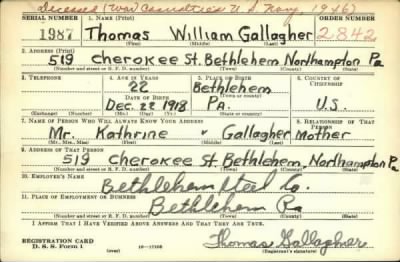 Deceased (War Casualties U.S. Navy 1946)
SERIAL NUMBER 1. NAME (Print) ORDER NUMBER
1987 Thomas William Gallagher 2842
(First) (Middle) (Last)
2. ADDRESS (Print)
519 Cherokee St. Bethlehem Northampton Pa
(Number and street or R. F. D. number) (Town) (County) (State)
3. TELEPHONE 4. AGE IN YEARS 5. PLACE OF BIRTH 6. COUNTRY OF CITIZENSHIP
22 Bethlehem
DATE OF BIRTH (Town or county)
Dec. 22 1918 Pa. U.S.
(Exchange) (Number) (Mo.) (Day) (Yr.) (State or country)
7. NAME OF PERSON WHO WILL ALWAYS KNOW YOUR ADDRESS 8. RELATIONSHIP OF THAT PERSON
Mr. Kathrine " Gallagher Mother
(Mr., Mrs., Miss) (First) (Middle) (Last)
9. ADDRESS OF THAT PERSON
519 Cherokee St. Bethlehem, Northampton Pa
(Number and street or R. F. D. number) (Town) (County) (State)
10. EMPLOYER'S NAME
Bethlehem Steel Co.
11. PLACE OF EMPLOYMENT OR BUSINESS
Bethlehem Pa
(Number and street or R. F. D. number) (Town) (County) (State)
I AFFIRM THAT I HAVE VERIFIED ABOVE ANSWERS AND THAT THEY ARE TRUE.
REGISTRATION CARD
D. S. S. Form 1 (over) 16-17105 Thomas Gallagher
(Registrant's signature)